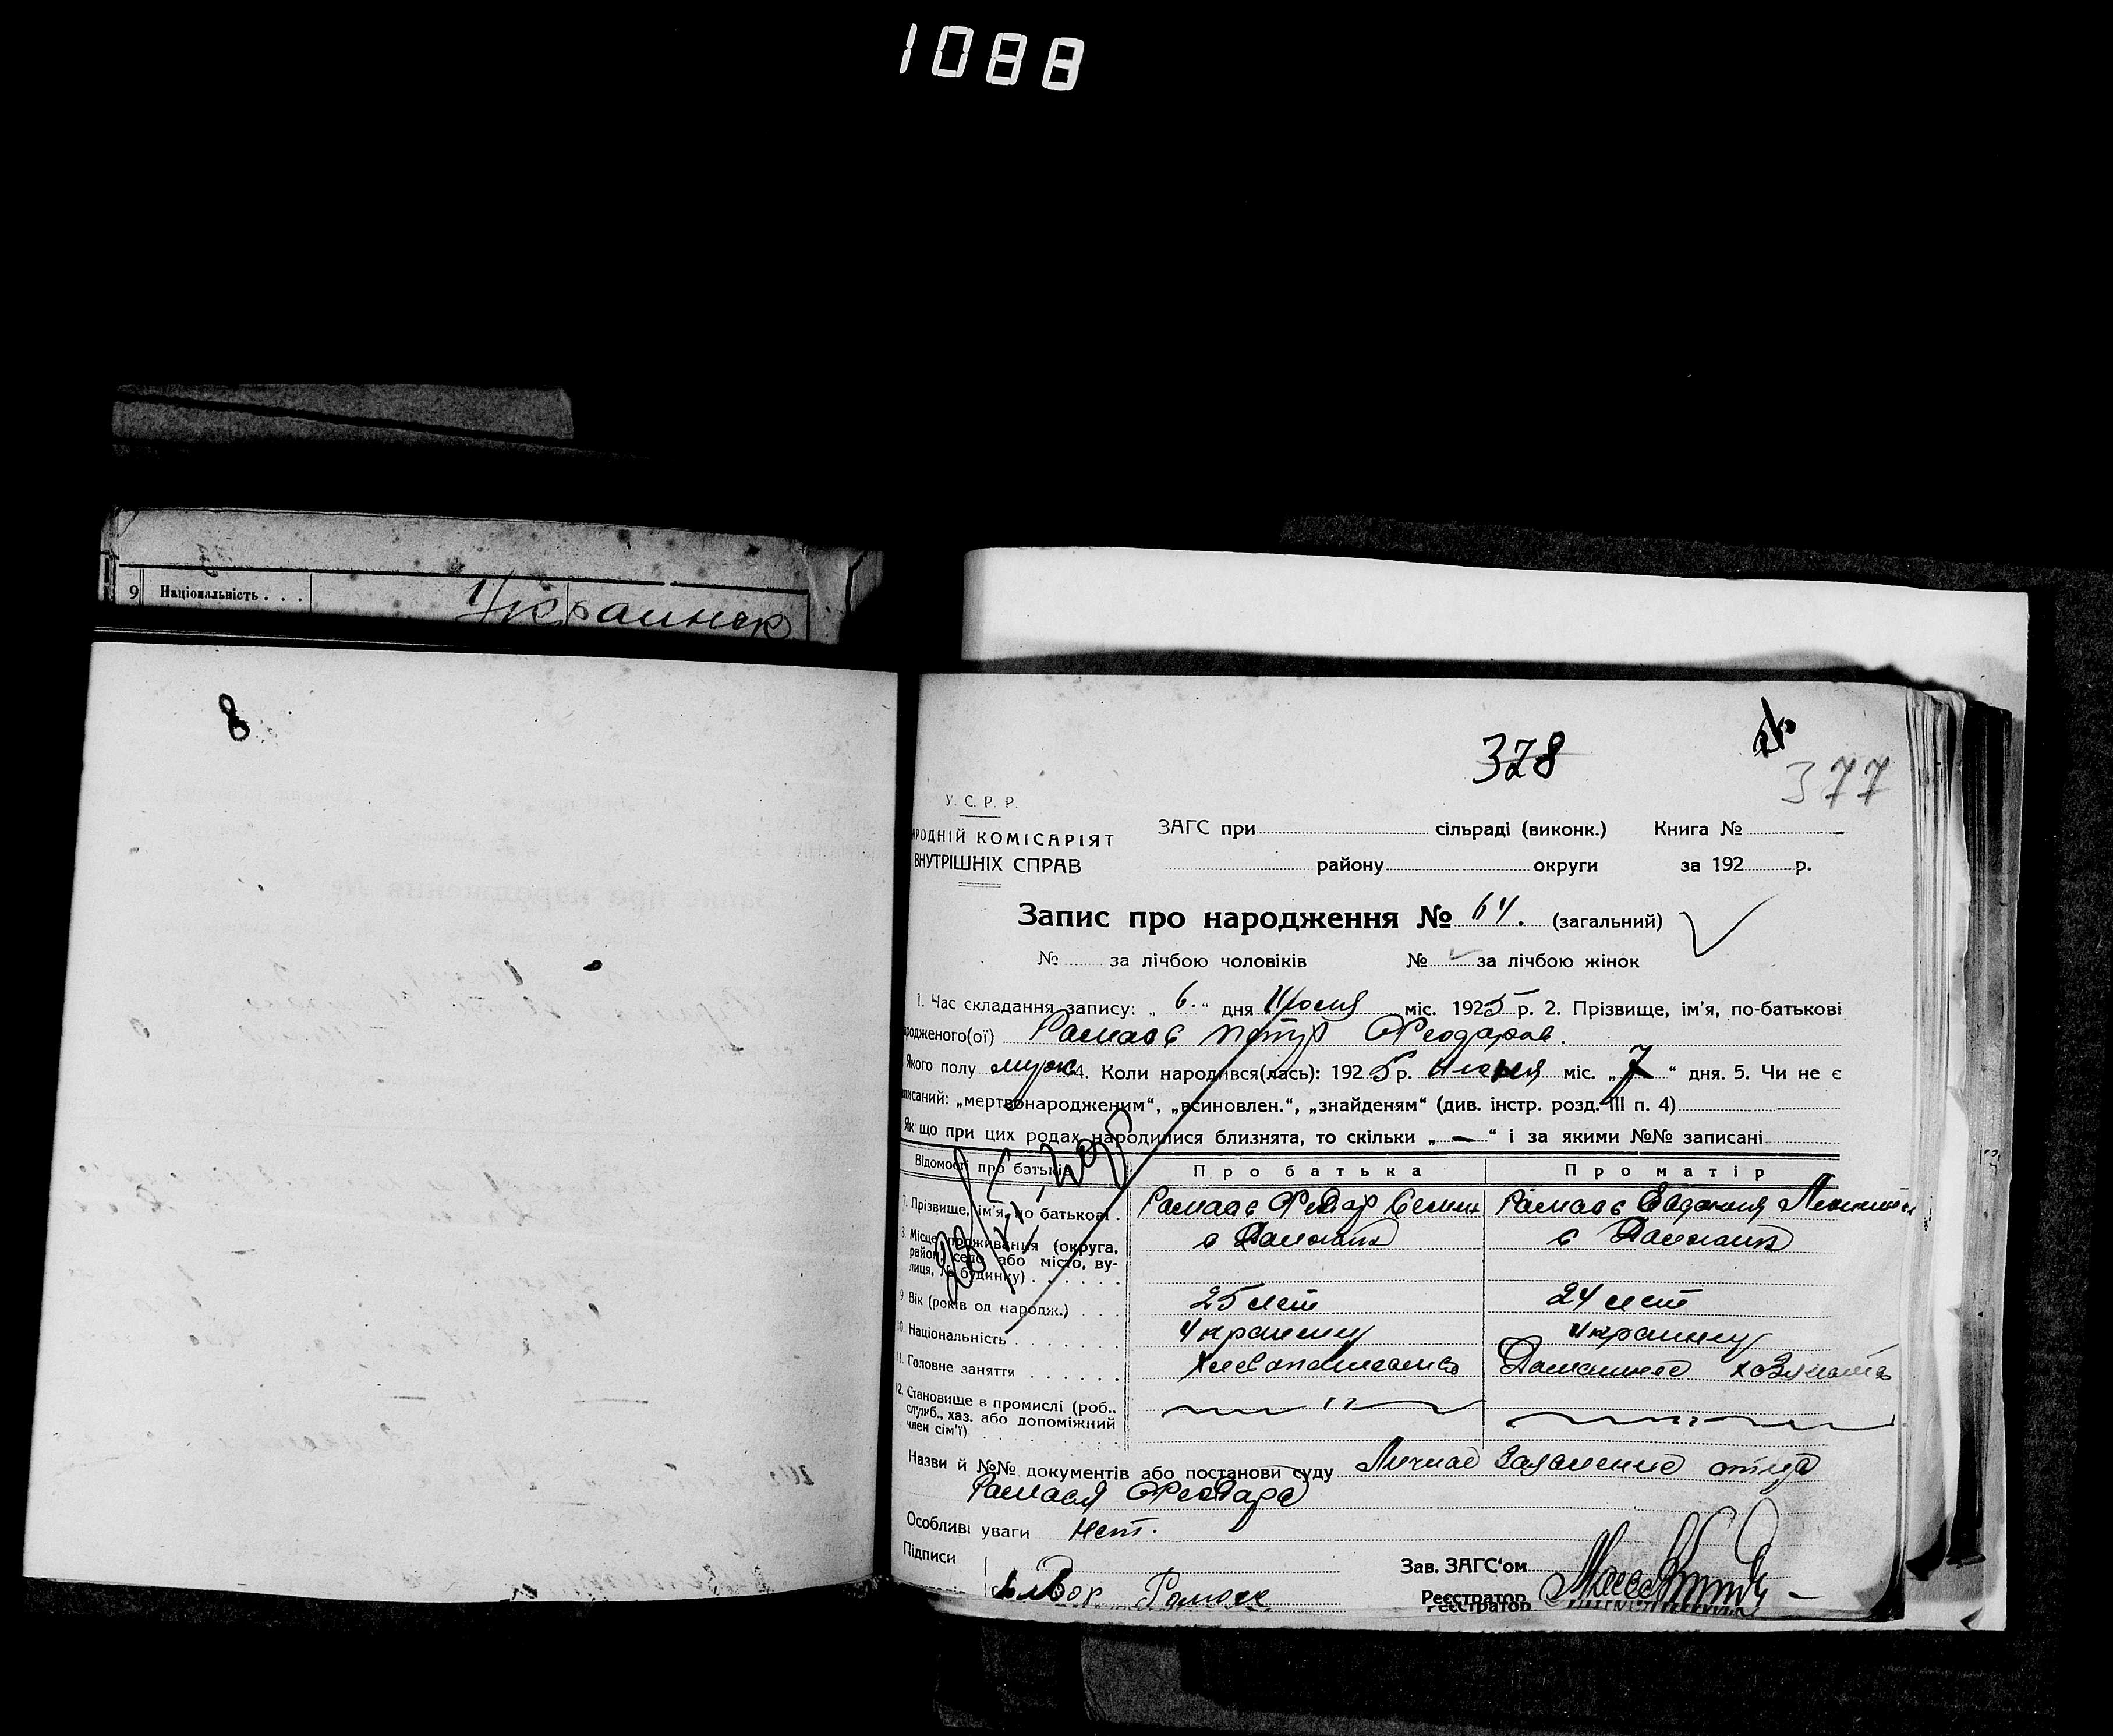 1088
9 Національність . . . Украинск
8
378
377
У. С. Р. Р.
РОДНІЙ КОМІСАРІЯТ
ВНУТРІШНІХ СПРАВ
ЗАГС при сільраді (виконк.) Книга №
району округи за 192 р.
Запис про народження № 64. (загальний)
№ за лічбою чоловіків № за лічбою жінок
1. Час складання запису: „ 6. “ дня Июля міс. 1925 р. 2. Прізвище, ім'я, по-батькові
родженого(ої) Петр Феодоров.
Якого полу муж 4. Коли народився(лась): 192 5 р. міс. „ 7 “ дня. 5. Чи не є
писаний: „мертвонародженим“, „всиновлен.“, „знайденям“ (див. інстр. розд. III п. 4)
Як що при цих родах народилися близнята, то скільки „ — “ і за якими №№ записані
Відомості про батьків Про батька Про матір
7. Прізвище, ім'я, по батькові . Федор Семен Евдокия
8. Місце проживання (округа,
район, село або місто, ву-
лиця, № будинку) . . . . . .
9. Вік (років од народж.) . . . 25 лет 24 лет
10. Національність . . . . . . . Украинец Украинец
11. Головне заняття . . . . . . Хлебопашество Домашнее хозяйство
12. Становище в промислі (роб.,
служб., хаз. або допоміжний
член сім'ї) . . . . . . . .
Назви й №№ документів або постанови суду Личное Заявление отца
Феодора
Особливі уваги нет.
Підписи
Зав. ЗАГС'ом
Реєстратор